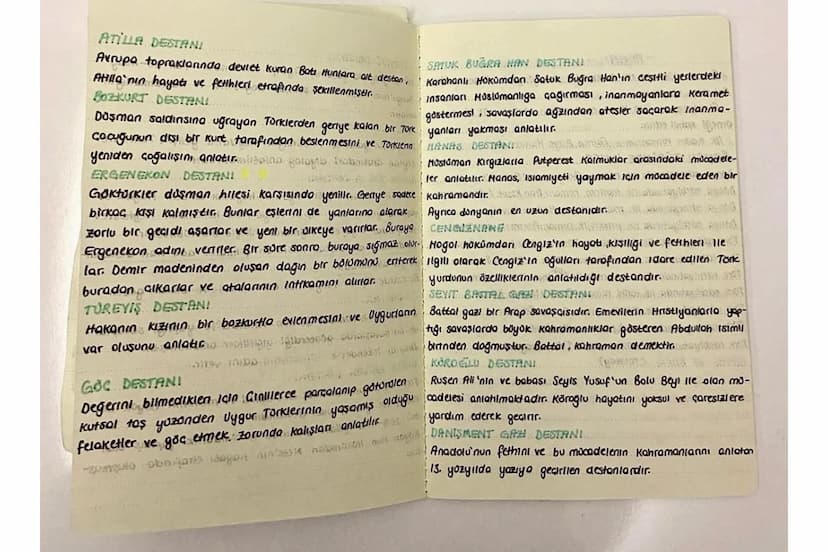 ATİLLA DESTANI
Avrupa topraklarında devlet kuran Batı Hunlara ait destan,
Atilla'nın hayatı ve fetihleri etrafında şekillenmiştir.
BOZKURT DESTANI
Düşman saldırısına uğrayan Türklerden geriye kalan bir Türk
Çocuğunun dişi bir kurt tarafından beslenmesini ve Türklerin
yeniden çoğalışını anlatır.
ERGENEKON DESTANI
Göktürkler düşman hilesi karşısında yenilir. Geriye sadece
birkaç kişi kalmıştır. Bunlar eşlerini de yanlarına alarak
zorlu bir geçidi aşarlar ve yeni bir ülkeye varırlar. Buraya
Ergenekon adını verirler. Bir süre sonra buraya sığmaz olur-
lar. Demir madeninden oluşan dağın bir bölümünü eriterek
buradan çıkarlar ve atalarının intikamını alırlar.
TÜREYİŞ DESTANI
Hakanın kızının bir bozkurtla evlenmesini ve Uygurların
var oluşunu anlatır.
GÖÇ DESTANI
Değerini bilmedikleri için Çinlilerce parçalanıp götürülen
kutsal taş yüzünden Uygur Türklerinin yaşamış olduğu
felaketler ve göç etmek zorunda kalışları anlatılır.
SATUK BUĞRA HAN DESTANI
Karahanlı Hükümdarı Satuk Buğra Han'ın çeşitli yerlerdeki
insanları Müslümanlığa çağırması, inanmayanlara Keramet
göstermesi, savaşlarda ağzından ateşler saçarak inanma-
yanları yakması anlatılır.
MANAS DESTANI
Müslüman Kırgızlarla Putperest Kalmuklar arasındaki mücadele-
ler anlatılır. Manas, İslamiyeti yaymak için mücadele eden bir
kahramandır.
Ayrıca dünyanın en uzun destanıdır.
CENGİZNAME
Moğol hükümdarı Cengiz'in hayatı, kişiliği ve fetihleri ile
ilgili olarak Cengiz'in oğulları tarafından idare edilen Türk
yurdunun özelliklerinin anlatıldığı destandır.
SEYİT BATTAL GAZİ DESTANI
Battal gazi bir Arap savaşçısıdır. Emevilerin Hristiyanlarla yap-
tığı savaşlarda büyük kahramanlıklar gösteren Abdullah isimli
birinden doğmuştur. Battal, kahraman demektir.
KÖROĞLU DESTANI
Ruşen Ali'nin ve babası Seyis Yusuf'un Bolu Beyi ile olan mü-
cadelesi anlatılmaktadır. Köroğlu hayatını yoksul ve çaresizlere
yardım ederek geçirir.
DANİŞMENT GAZİ DESTANI
Anadolu'nun fethini ve bu mücadelenin Kahramanlarını anlatan
13. yüzyılda yazıya geçirilen destanlardır.